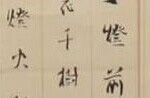 燈前
花千樹
燈火